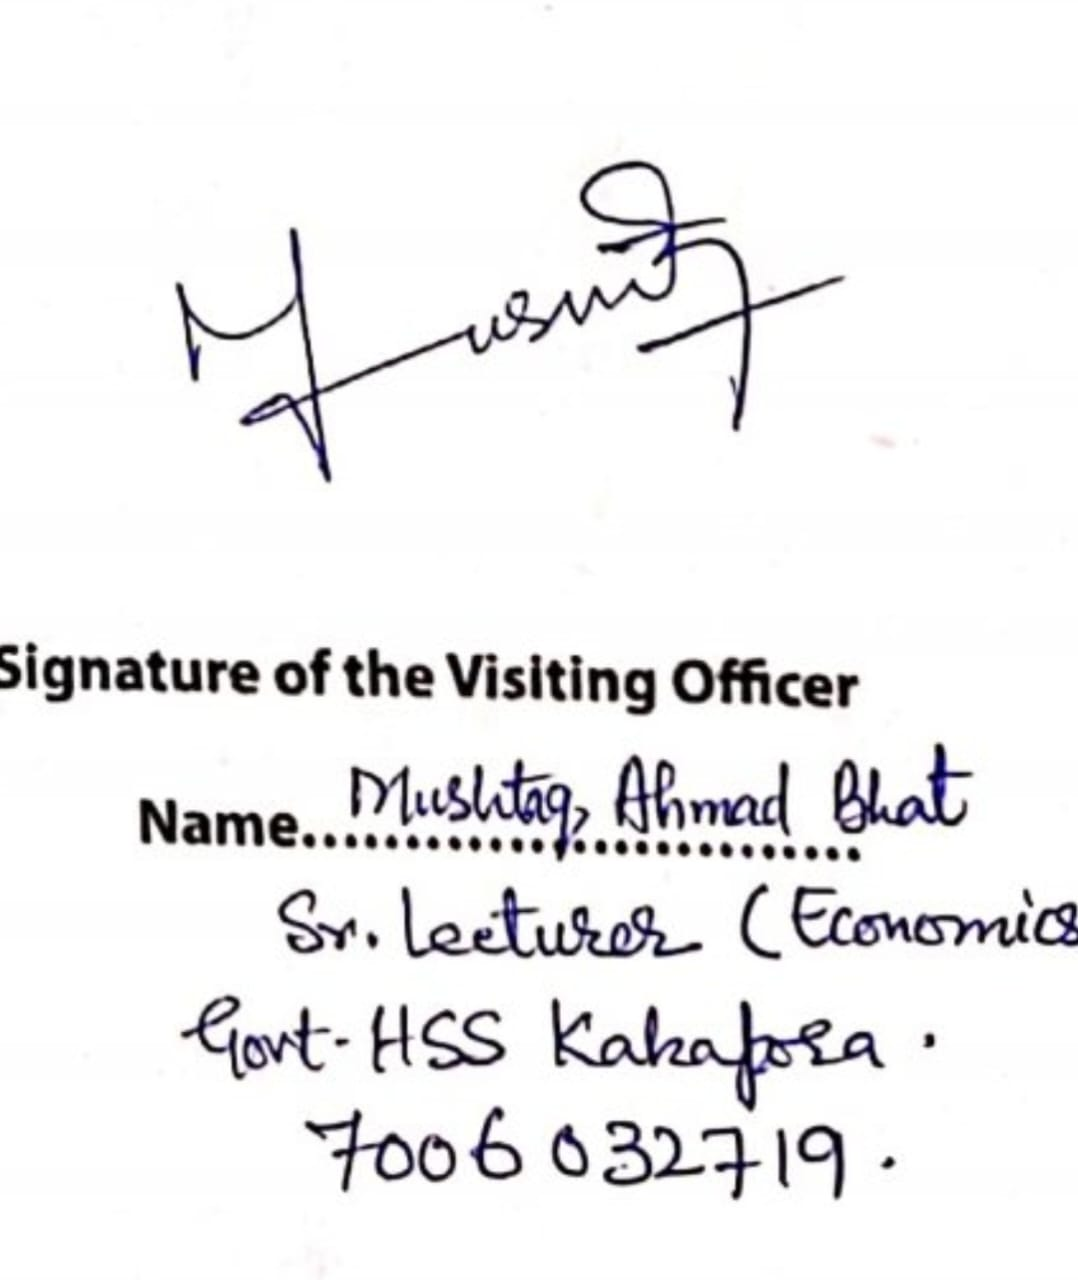 Signature of the Visiting Officer
Name.... Mushtaq Ahmad Bhat
Sr. Lecturer (Economics
Govt- HSS Kakapora.
7006032719.